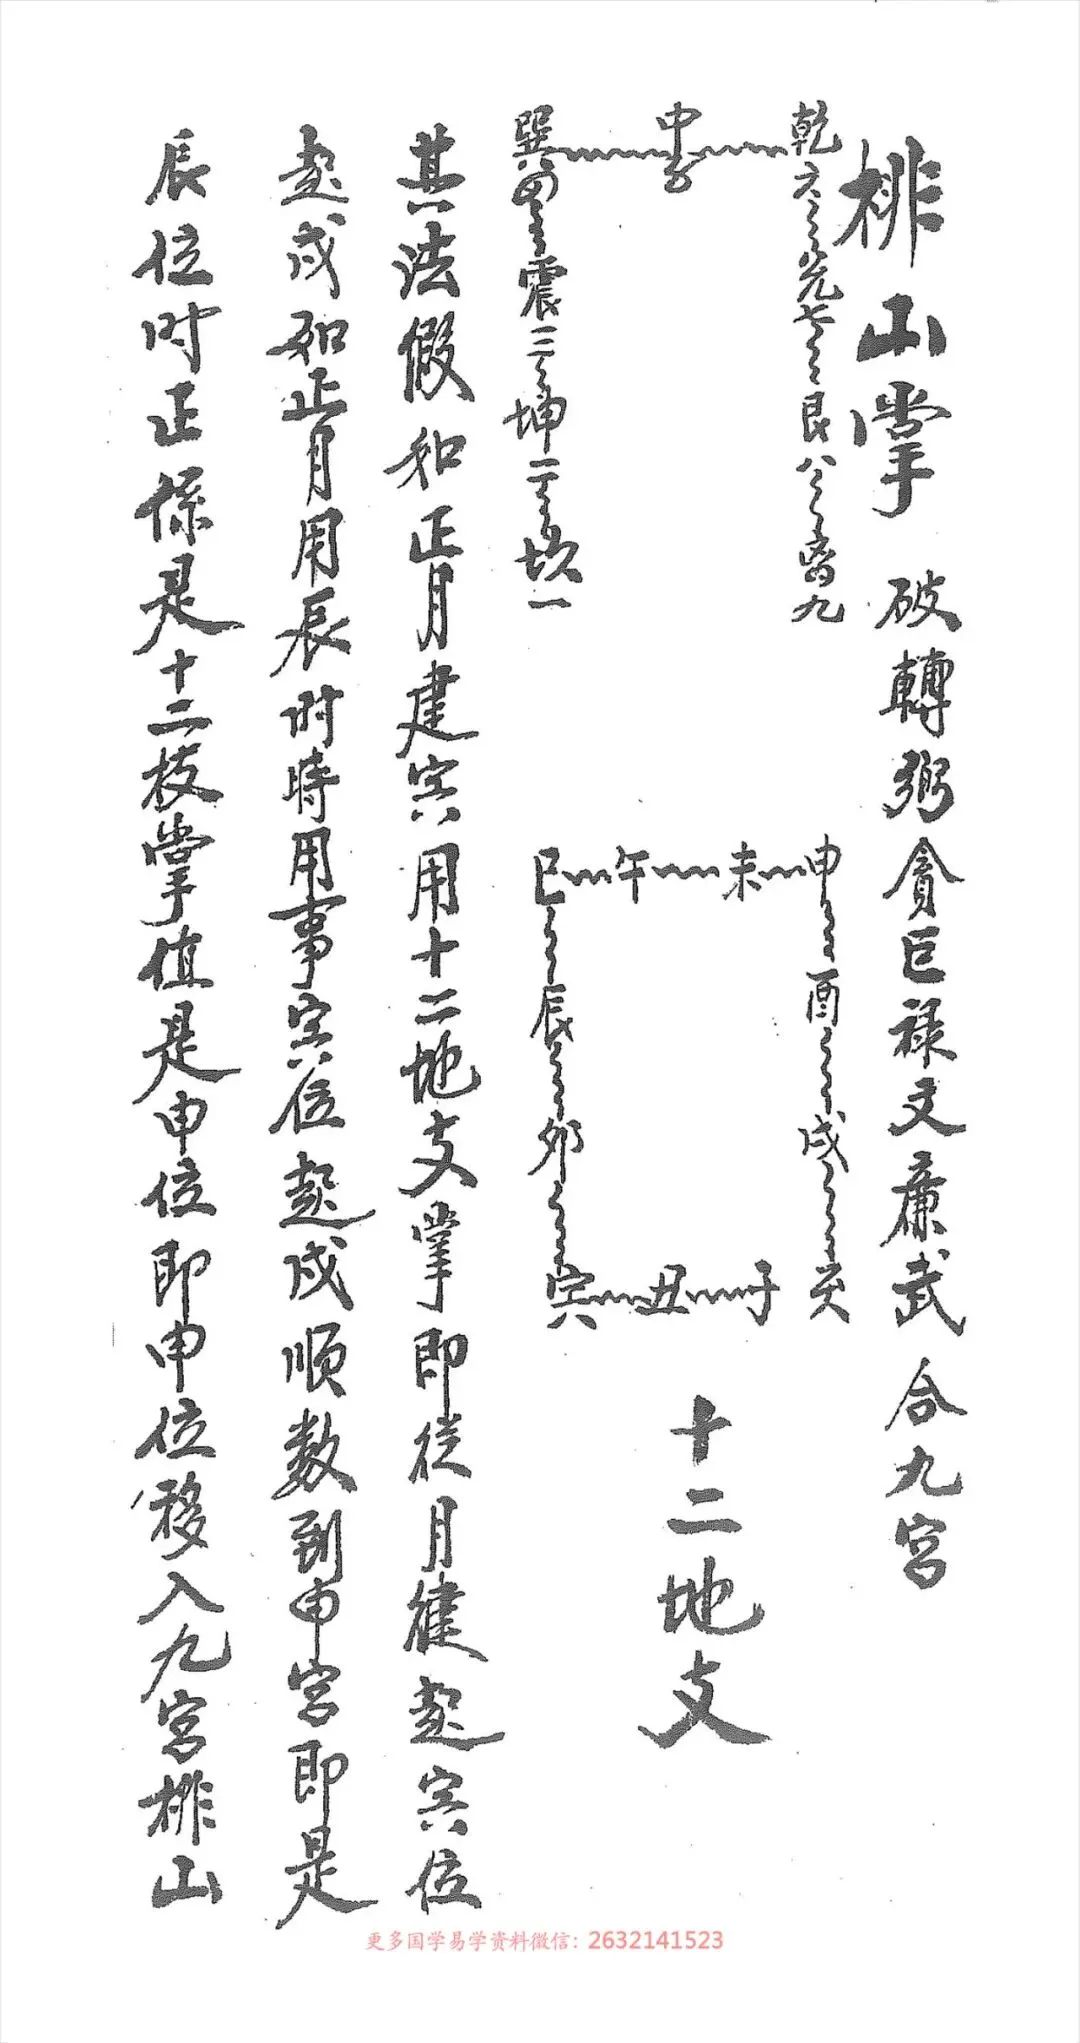 排山掌 破轉弼貪巨祿文廉武 合九宮
乾六 兌七 艮八 離九
中五
巽四 震三 坤二 坎一
申 酉 戌 亥
未
午
巳 辰 卯 寅
丑
子
十二地支
其法假和正月建寅用十二地支掌即從月健起寅位
起戌如正月用辰时時用事寅位起戌順数到申宮即是
辰位时正係是十二枝掌值是申位即申位移入九宮排山
更多国学易学资料微信：2632141523